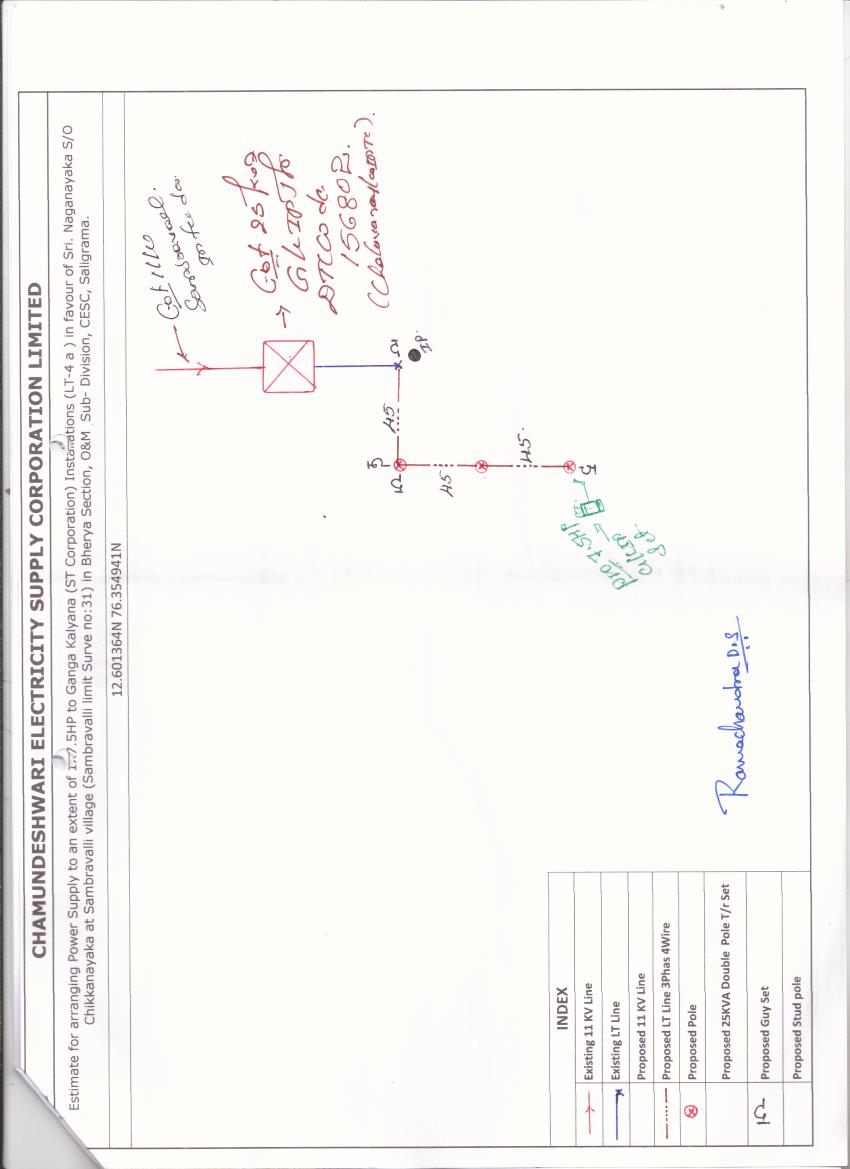 CHAMUNDESHWARI ELECTRICITY SUPPLY CORPORATION LIMITED
Estimate for arranging Power Supply to an extent of 1x7.5HP to Ganga Kalyana (ST Corporation) Installations (LT-4 a ) in favour of Sri. Naganayaka S/O
Chikkanayaka at Sambravalli village (Sambravalli limit Surve no:31) in Bherya Section, O&M Sub- Division, CESC, Saligrama.
12.601364N 76.354941N
DTC Code
15680
IP.
45
45
45
7.5HP
Ramachandra D.S
INDEX
Existing 11 KV Line
Existing LT Line
Proposed 11 KV Line
Proposed LT Line 3Phas 4Wire
Proposed Pole
Proposed 25KVA Double Pole T/r Set
Proposed Guy Set
Proposed Stud pole